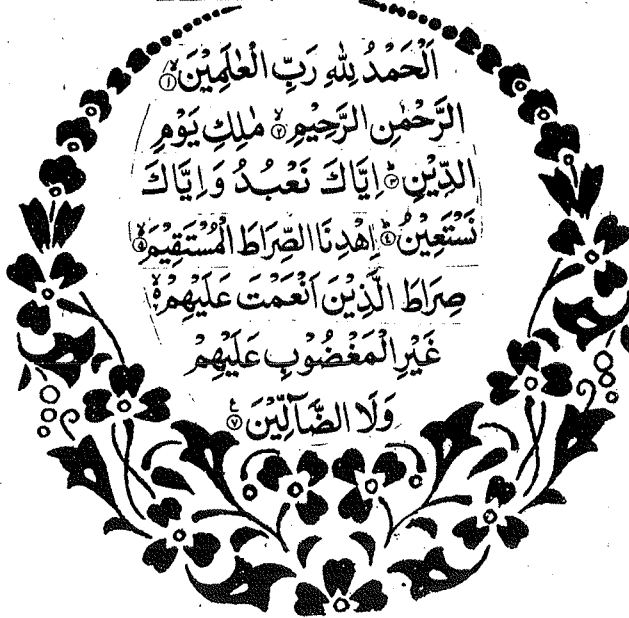 اَلْحَمْدُ لِلّٰهِ رَبِّ الْعٰلَمِيْنَ ۙ﴿۱﴾
الرَّحْمٰنِ الرَّحِيْمِ ۙ﴿۲﴾ مٰلِكِ يَوْمِ
الدِّيْنِ ؕ﴿۳﴾ اِيَّاكَ نَعْبُدُ وَاِيَّاكَ
نَسْتَعِيْنُ ؕ﴿۴﴾ اِهْدِنَا الصِّرَاطَ الْمُسْتَقِيْمَ ۙ﴿۵﴾
صِرَاطَ الَّذِيْنَ اَنْعَمْتَ عَلَيْهِمْ ۙ۬
غَيْرِ الْمَغْضُوْبِ عَلَيْهِمْ
وَلَا الضَّآلِّيْنَ ﴿۷﴾